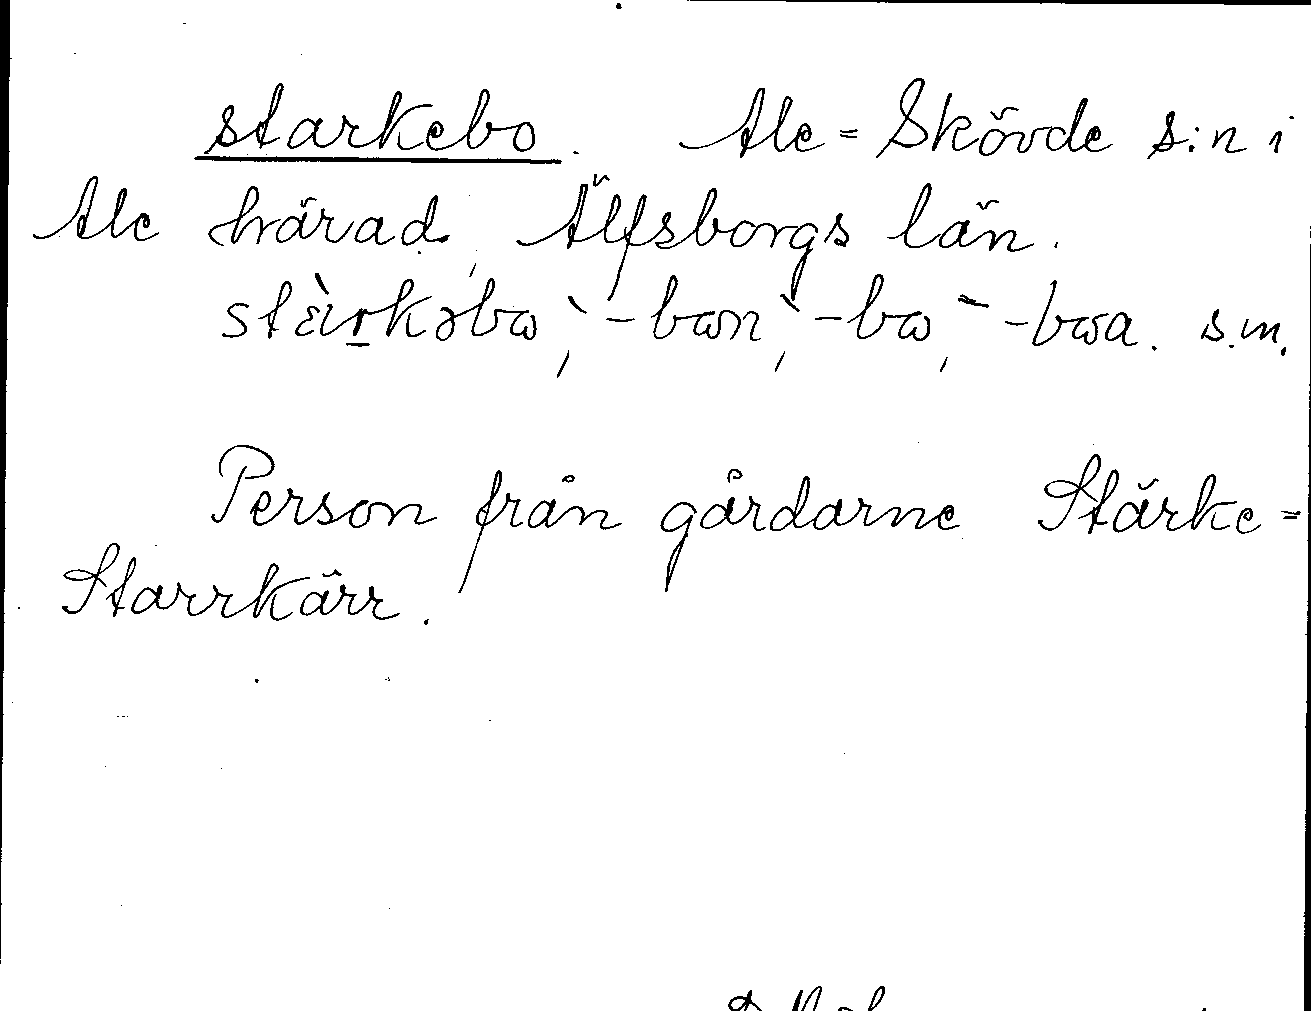 starkebo. Ale-Skövde s:n i
Ale härad, Älfsborgs län.
-bon, -bo, -boa. s.m.
Person från gårdarne Stärke-
Starrkärr.